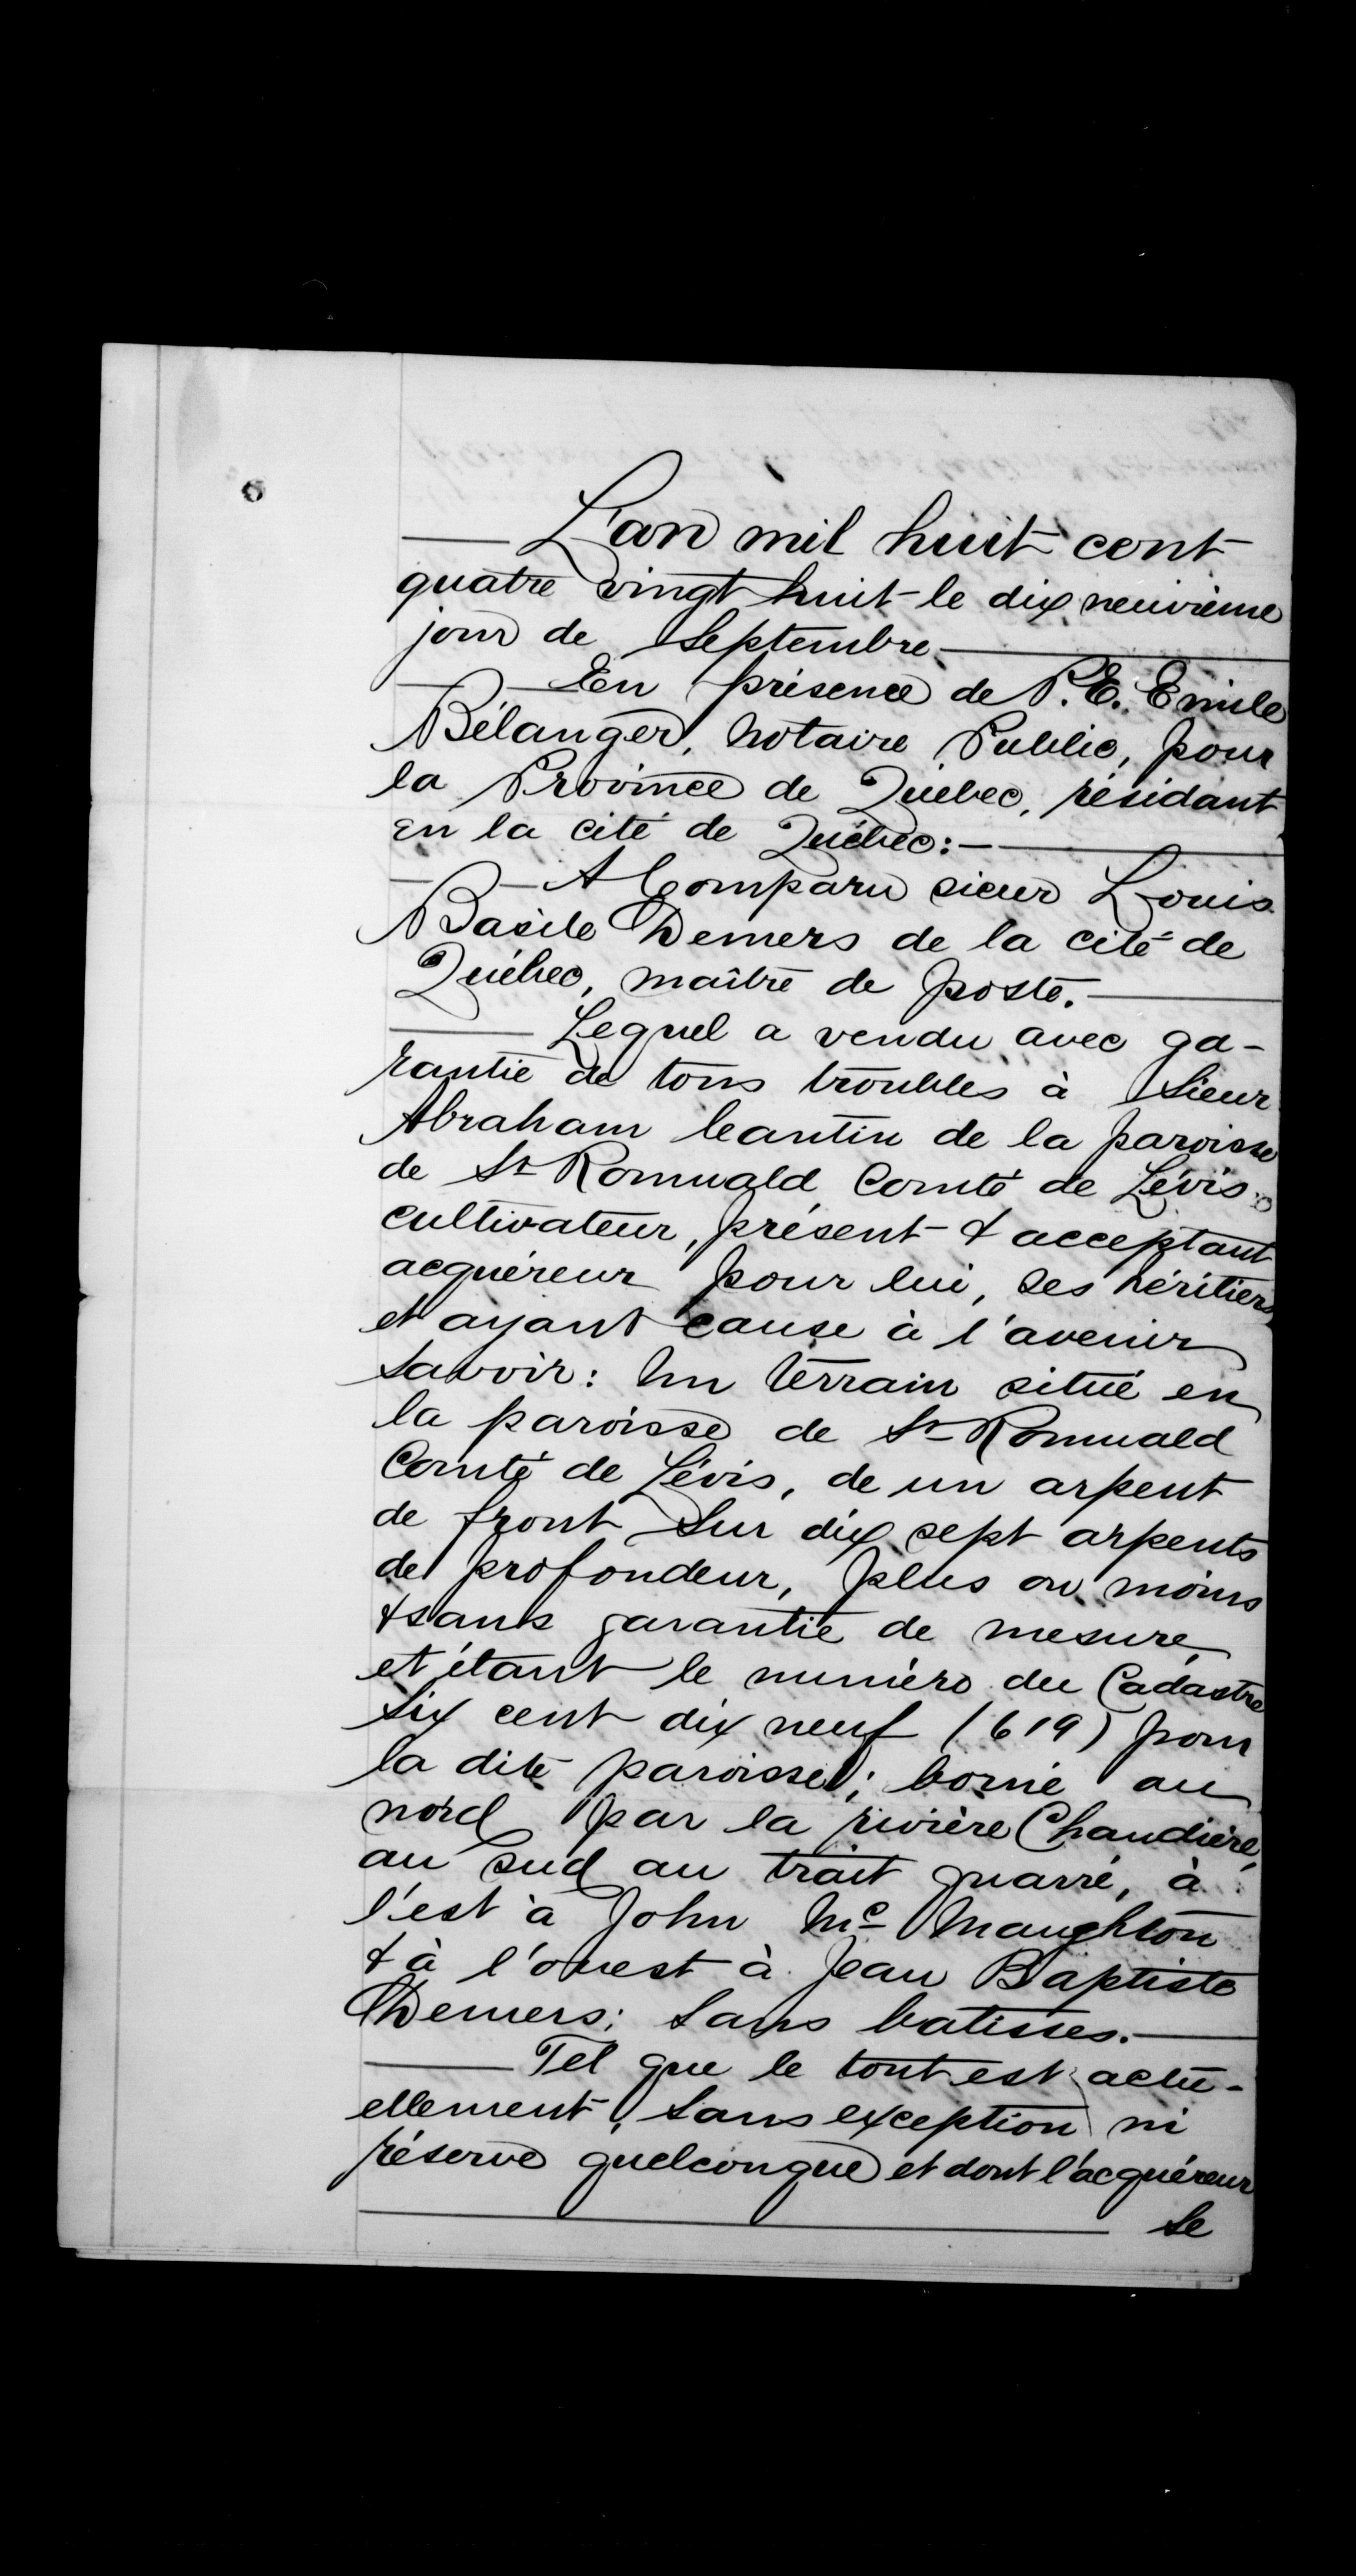 L'an mil huit cent
quatre vingt huit le dix neuvième
jour de Septembre
En présence de P. E. Emile
Bélanger, Notaire Public, pour
la Province de Québec, résidant
en la cité de Québec:
A Comparu sieur Louis
Basile Demers de la cité de
Québec, maître de poste.
Lequel a vendu avec ga-
rantie de tous troubles à Sieur
Abraham Cantin de la paroisse
de St Romuald Comté de Lévis
cultivateur, présent & acceptant
acquéreur pour lui, ses héritiers
et ayant cause à l'avenir
savoir: Un terrain situé en
la paroisse de St Romuald
Comté de Lévis, de un arpent
de front sur dix sept arpents
de profondeur, plus ou moins
& sans garantie de mesure
et étant le numéro du Cadastre
Six cent dix neuf (619) pour
la dite paroisse; borné au
nord par la rivière Chaudière,
au Sud au trait quarré, à
l'est à John Mc Naughton
& à l'ouest à Jean Baptiste
Demers; Sans batisses.
Tel que le tout est actu-
ellement, sans exception ni
réserve quelconque et dont l'acquéreur
se